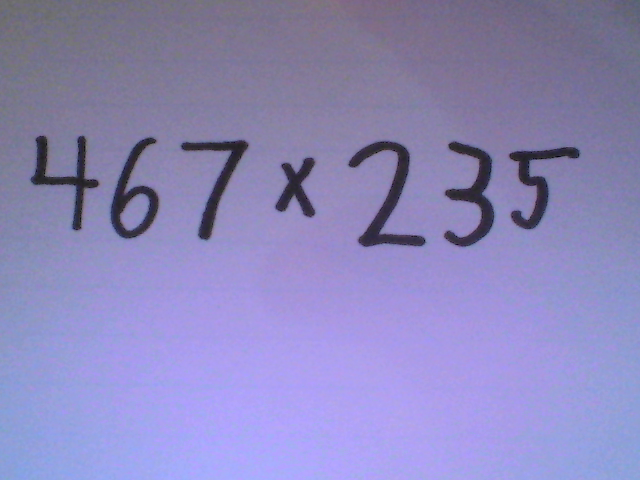 467 x 235